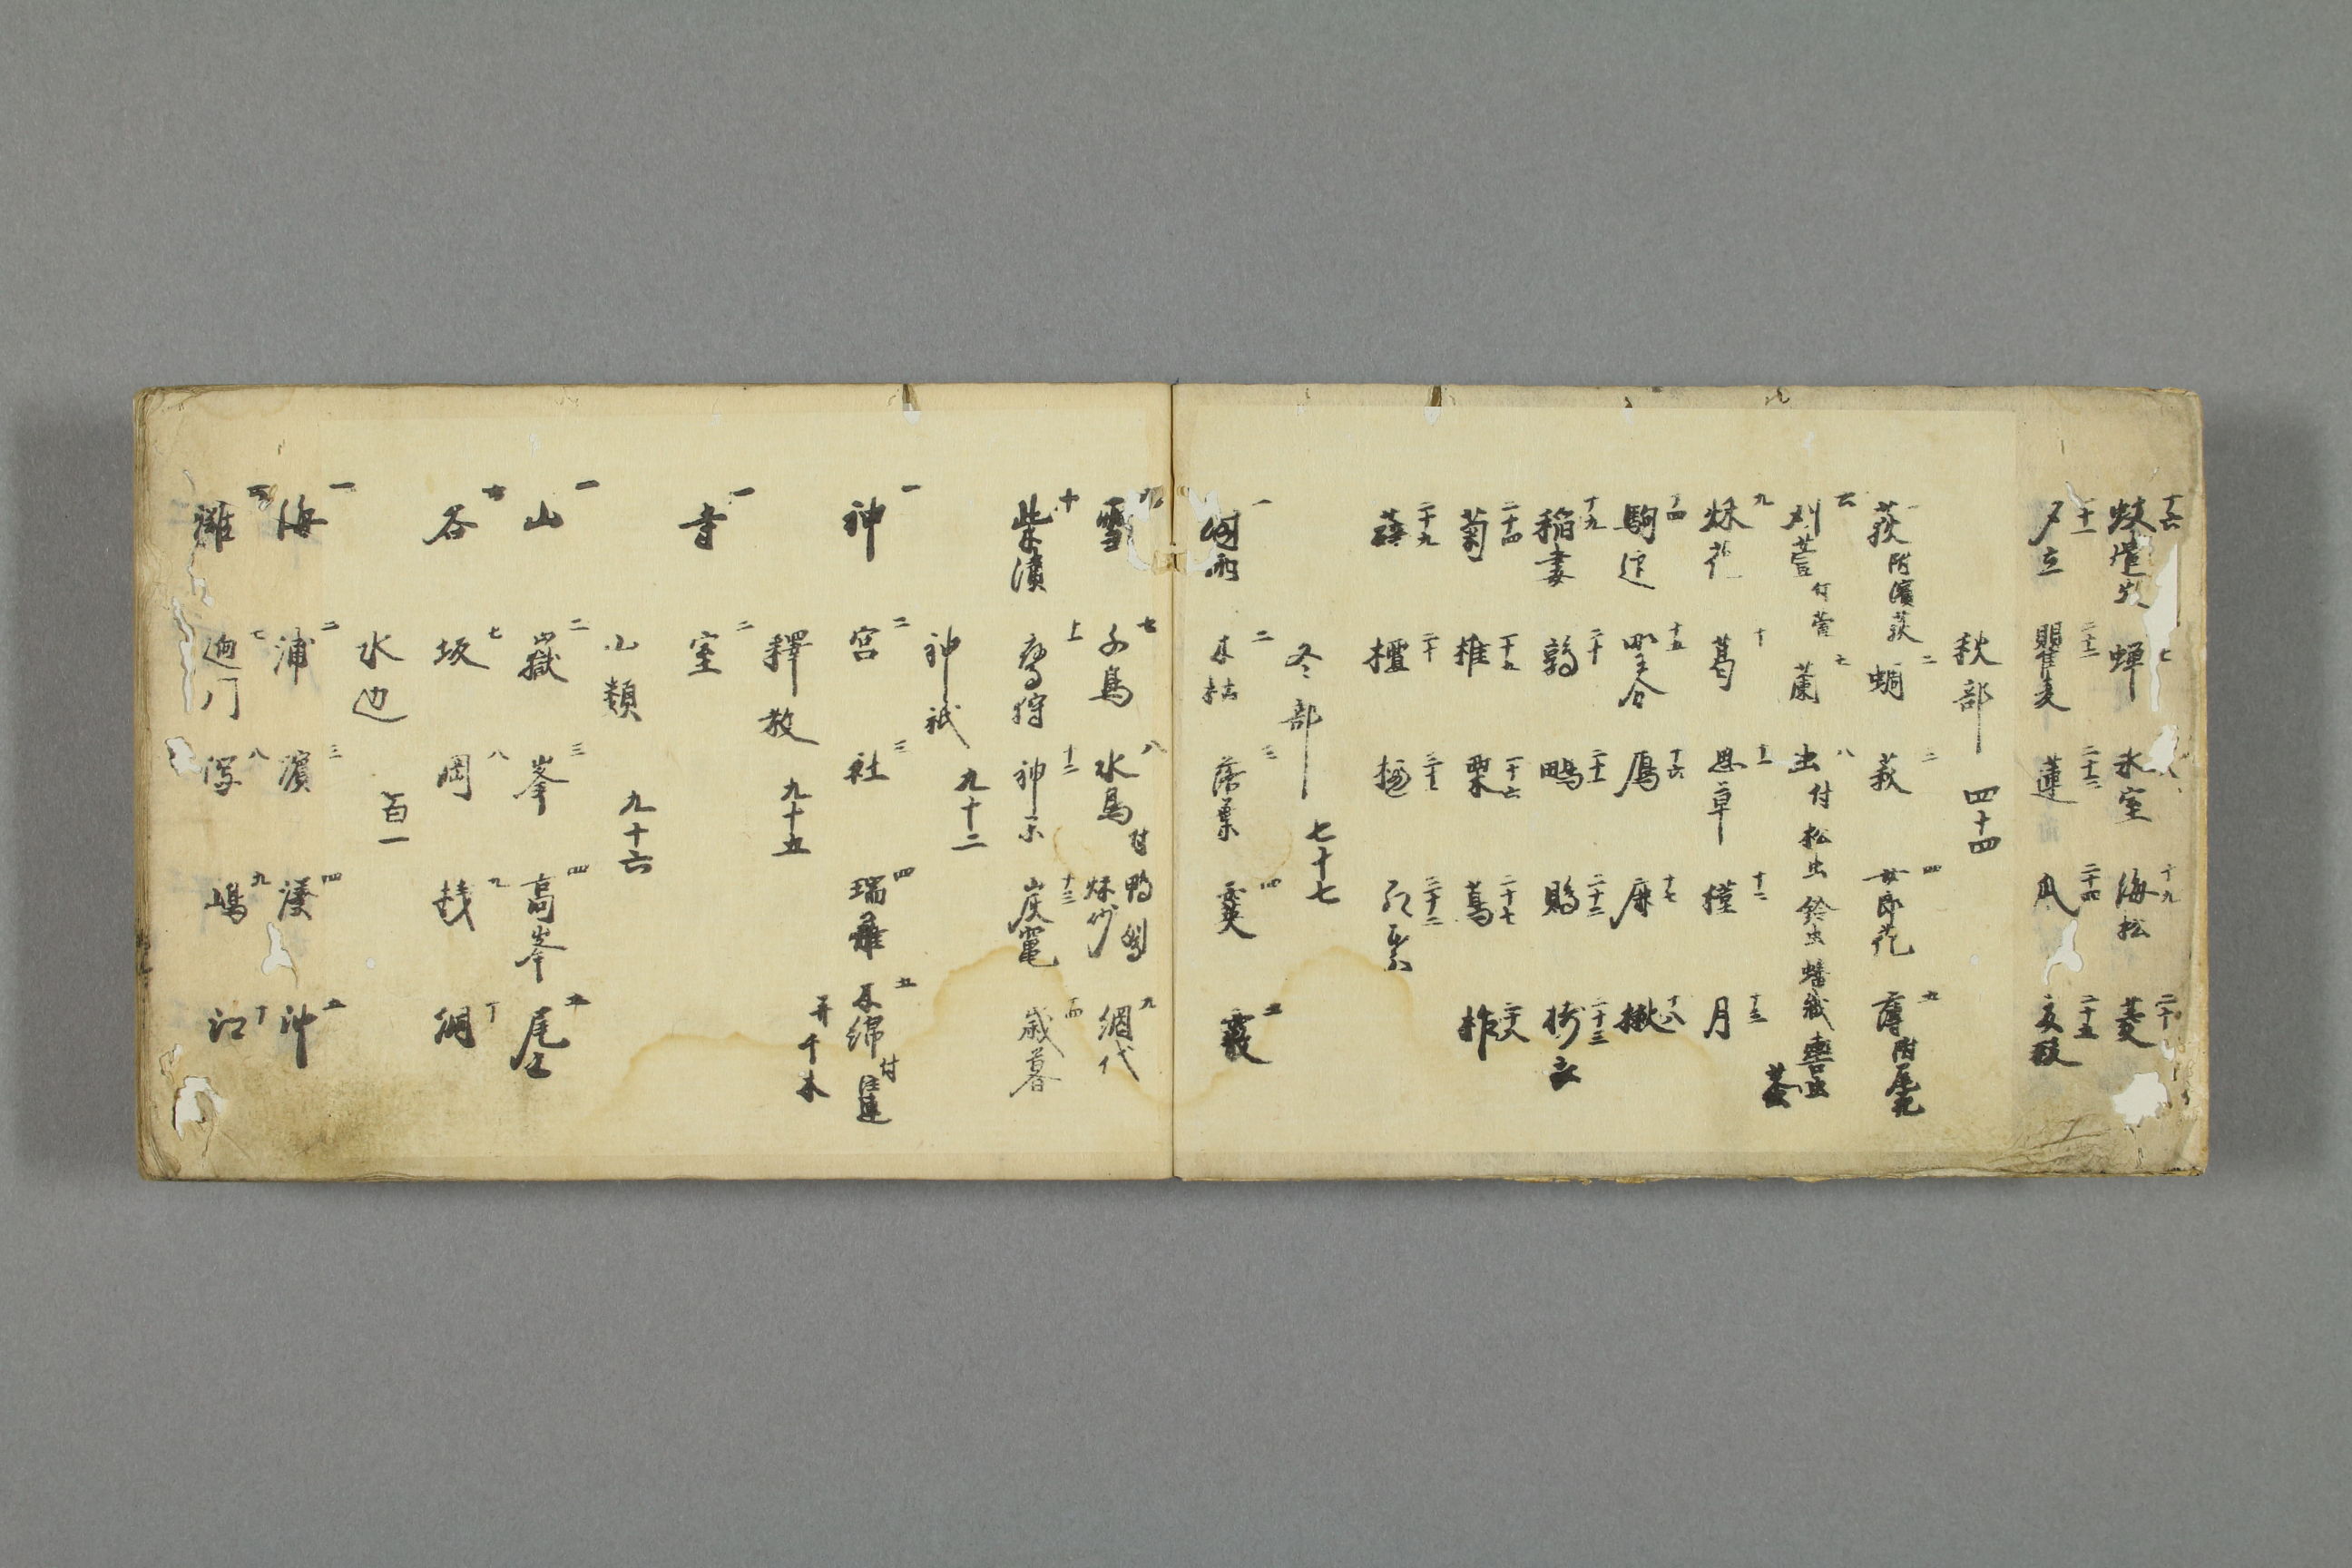 十六 蚊遣火 七 蝉 氷室 十九 海松 二十 菱
二十一 夕立 二十二 瞿麦 二十三 蓮 二十四 瓜 二十五 夏殿
秋部 四十四
一 荻 附濱荻 二 蜩 三 萩 四 女郎花 五 薄 附尾花
六 刈萱 付萱 七 蘭 八 虫 付 松虫 鈴虫 蟋蟀
九 秌花 十 葛 十一 思草 十二 槿 十三 月
十四 駒迎 十五 野分 十六 鴈 十七 鹿 十八 楸
十九 稲妻 二十 鶉 二十一 鴫 二十二 鵙 二十三 擣衣
二十四 菊 二十五 椎 二十六 栗 二十七 蔦 二十八 柞
二十九 蘓 三十 檀 三十一 櫨 三十二 紅葉
冬部 七十七
一 時雨 二 木枯 三 落葉 四 霙 五 霰
雪 七 千鳥 八 水鳥 付 鴨 鴛 秌沙 九 網代
十 柴漬 十一 鷹狩 十二 神楽 十三 炭竃 十四 歳暮
神祇 九十二
一 神 二 宮 三 社 四 瑞籬 五 木綿 付 注連
并千木
釋教 九十五
一 寺 二 室
山類 九十六
一 山 二 嶽 三 峯 四 高峯 五 尾上
六 谷 七 坂 八 岡 九 桟 十 洞
水辺 百一
一 海 二 浦 三 濱 四 湊 五 沖
六 灘 七 迫門 八 潟 九 嶋 十 江